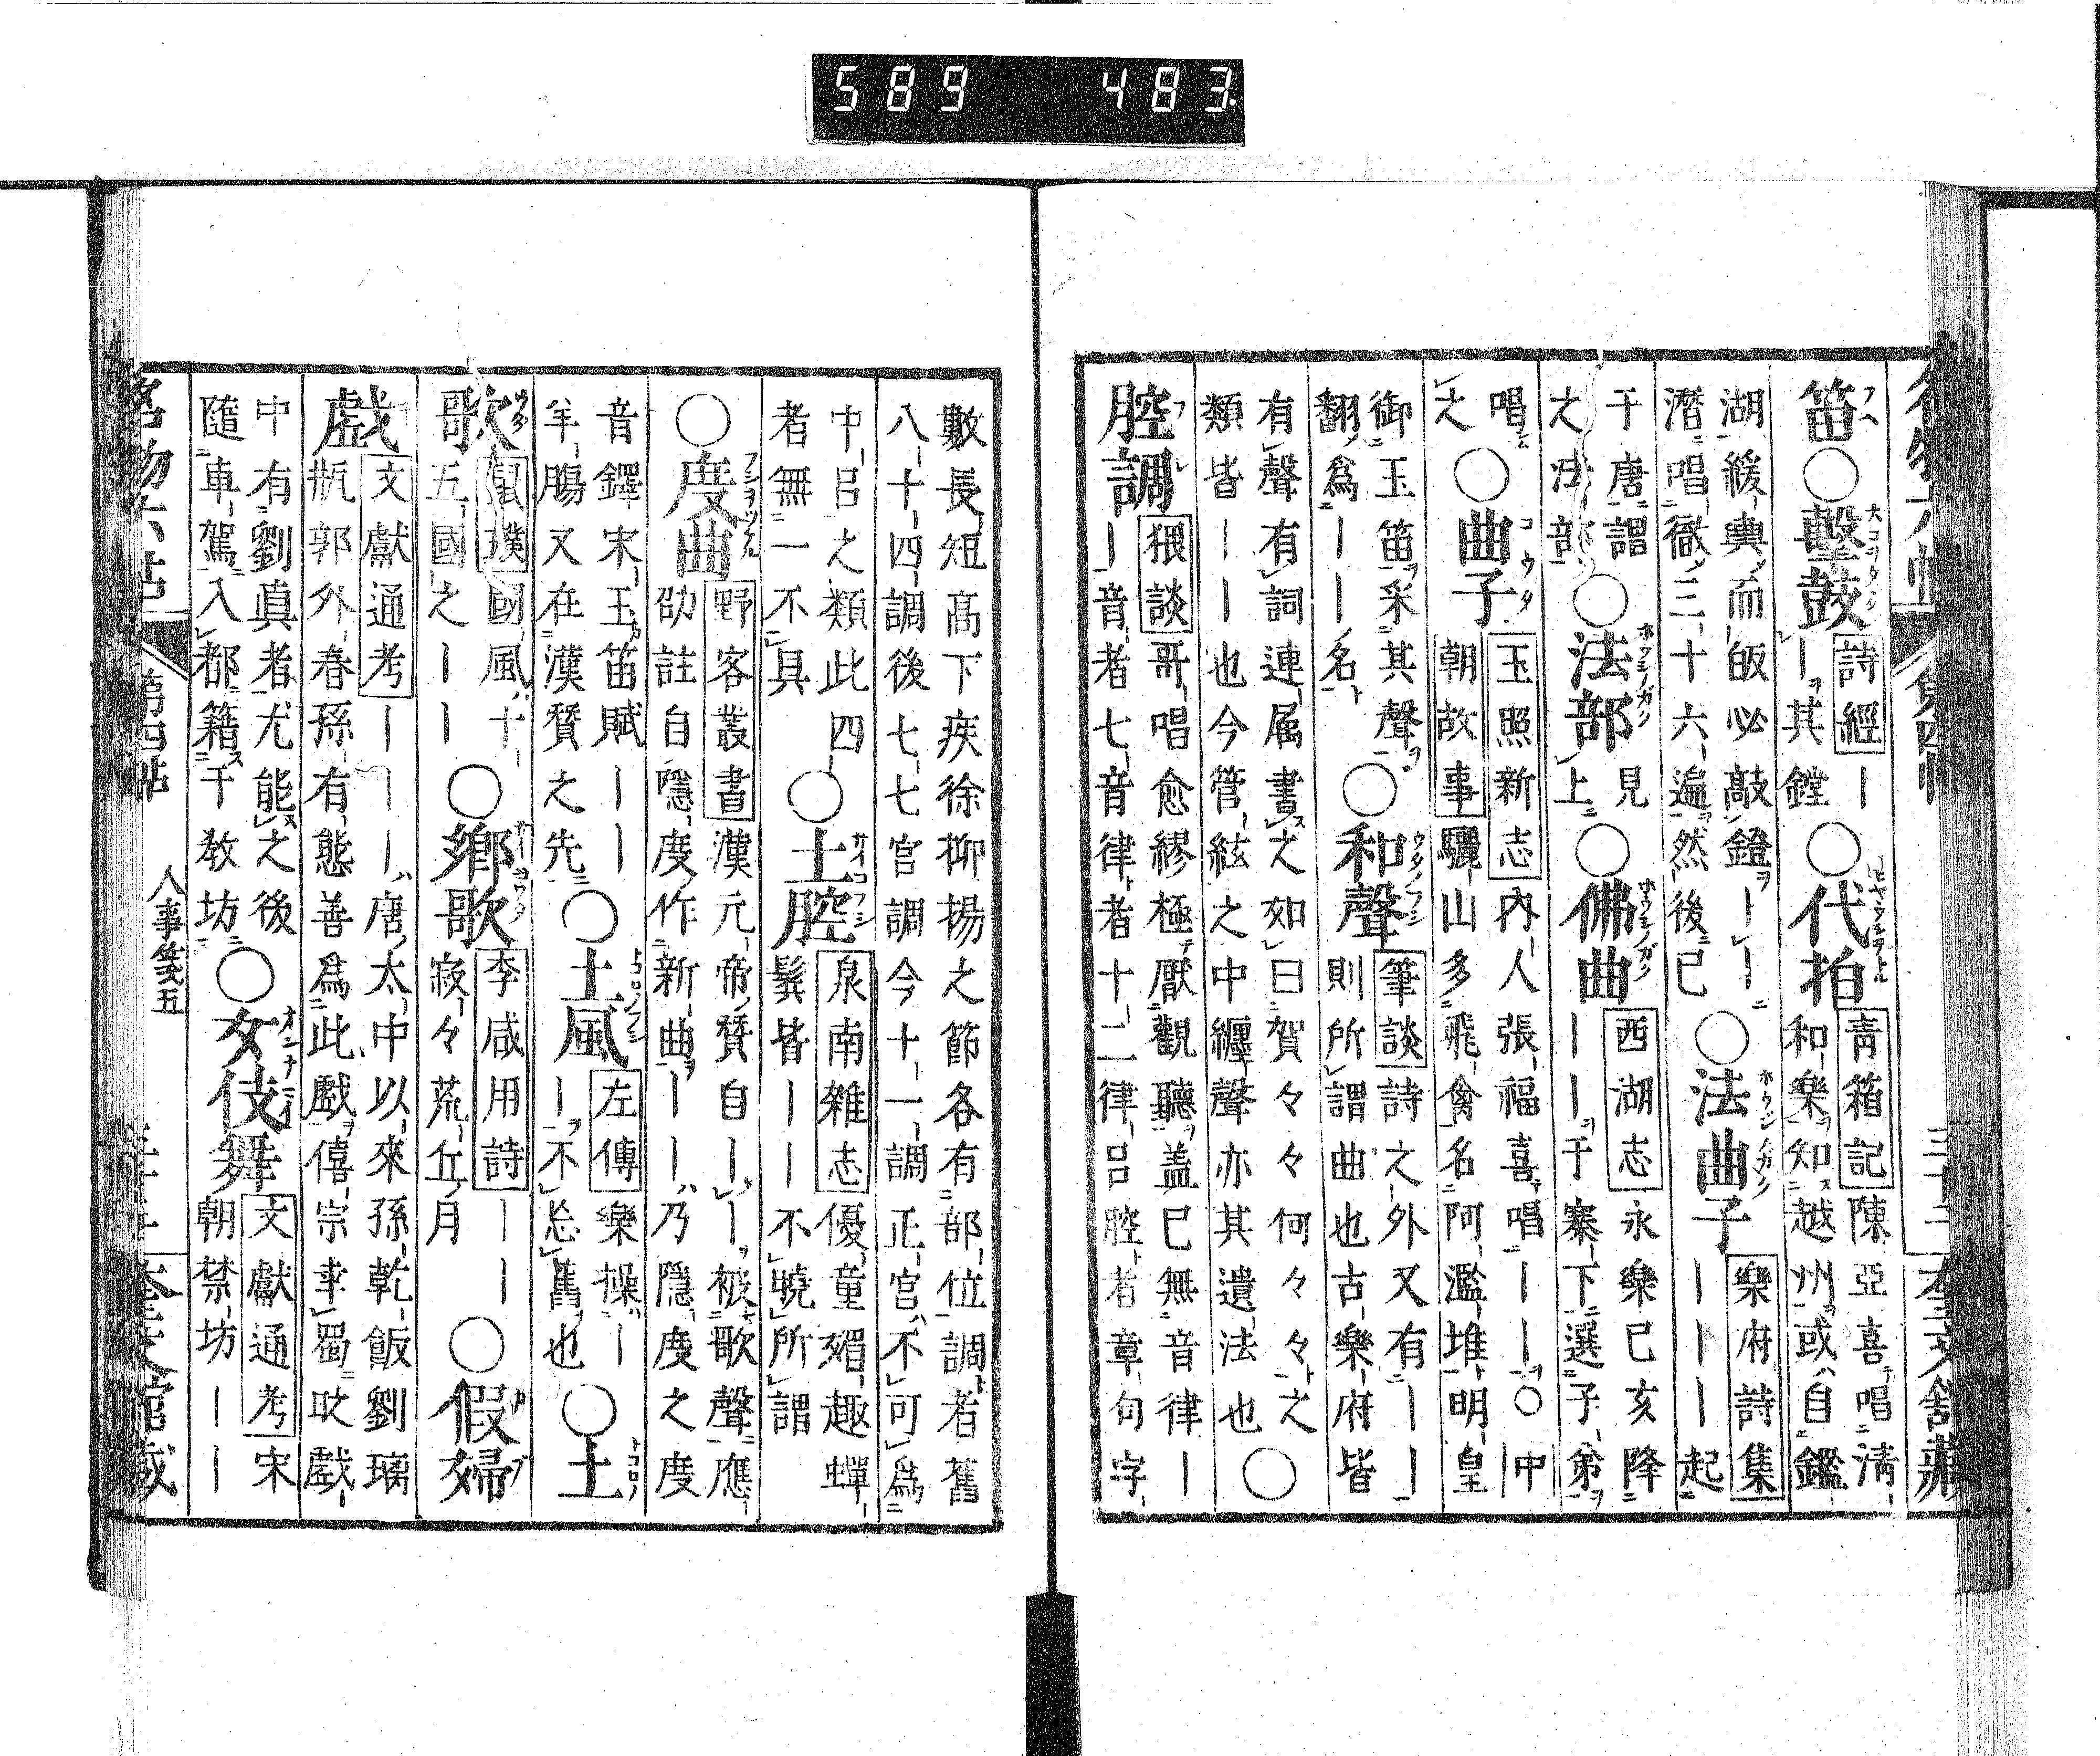 589 483
笛○擊鼓詩經｜｜其鏜○代拍青箱記陳亞喜唱淸和樂知越州或自鑑
湖緩輿而皈必敲鐙｜｜潛唱徹三十六遍然後已○法曲子樂府詩集｜｜｜起
于唐謂之法部○法部見上○佛曲西湖志永樂已亥降｜｜于寨下選子弟
唱之○曲子玉照新志內人張福喜唱｜｜○中朝故事驪山多飛禽名阿濫堆明皇
御玉笛采其聲翻爲｜｜名○和聲筆談詩之外又有｜｜則所謂曲也古樂府皆
有聲有詞連屬書之如曰賀々々何々々之類皆｜｜也今管絃之中纏聲亦其遺法也○
腔調猥談哥唱愈繆極厭觀聽盖已無音律｜｜音者七音律者十二律呂腔者章句字
數長短高下疾徐抑揚之節各有部位調者舊八十四調後七七宮調今十一調正宮不可爲
中呂之類此四者無一不具○土腔泉南雜志優童媚趣蟬鬢皆｜｜不曉所謂
○度曲野客叢書漢元帝贊自｜｜被歌聲應劭註自隱度作新曲｜｜乃隱度之度
音鐸宋玉笛賦｜｜羊膓又在漢贊之先○土風左傳樂操｜｜不忘舊也○土
歌國風十五國之｜｜○鄉歌李咸用詩｜｜寂々荒丘月○假婦
戲文獻通考｜｜｜唐太中以來孫乾飯劉璃瓶郭外春孫有態善爲此戲僖宗幸蜀戲
中有劉真者尤能之後隨車駕入都籍于教坊○女伎舞文獻通考宋朝禁坊｜｜
名物六帖 第四帖 人事箋五